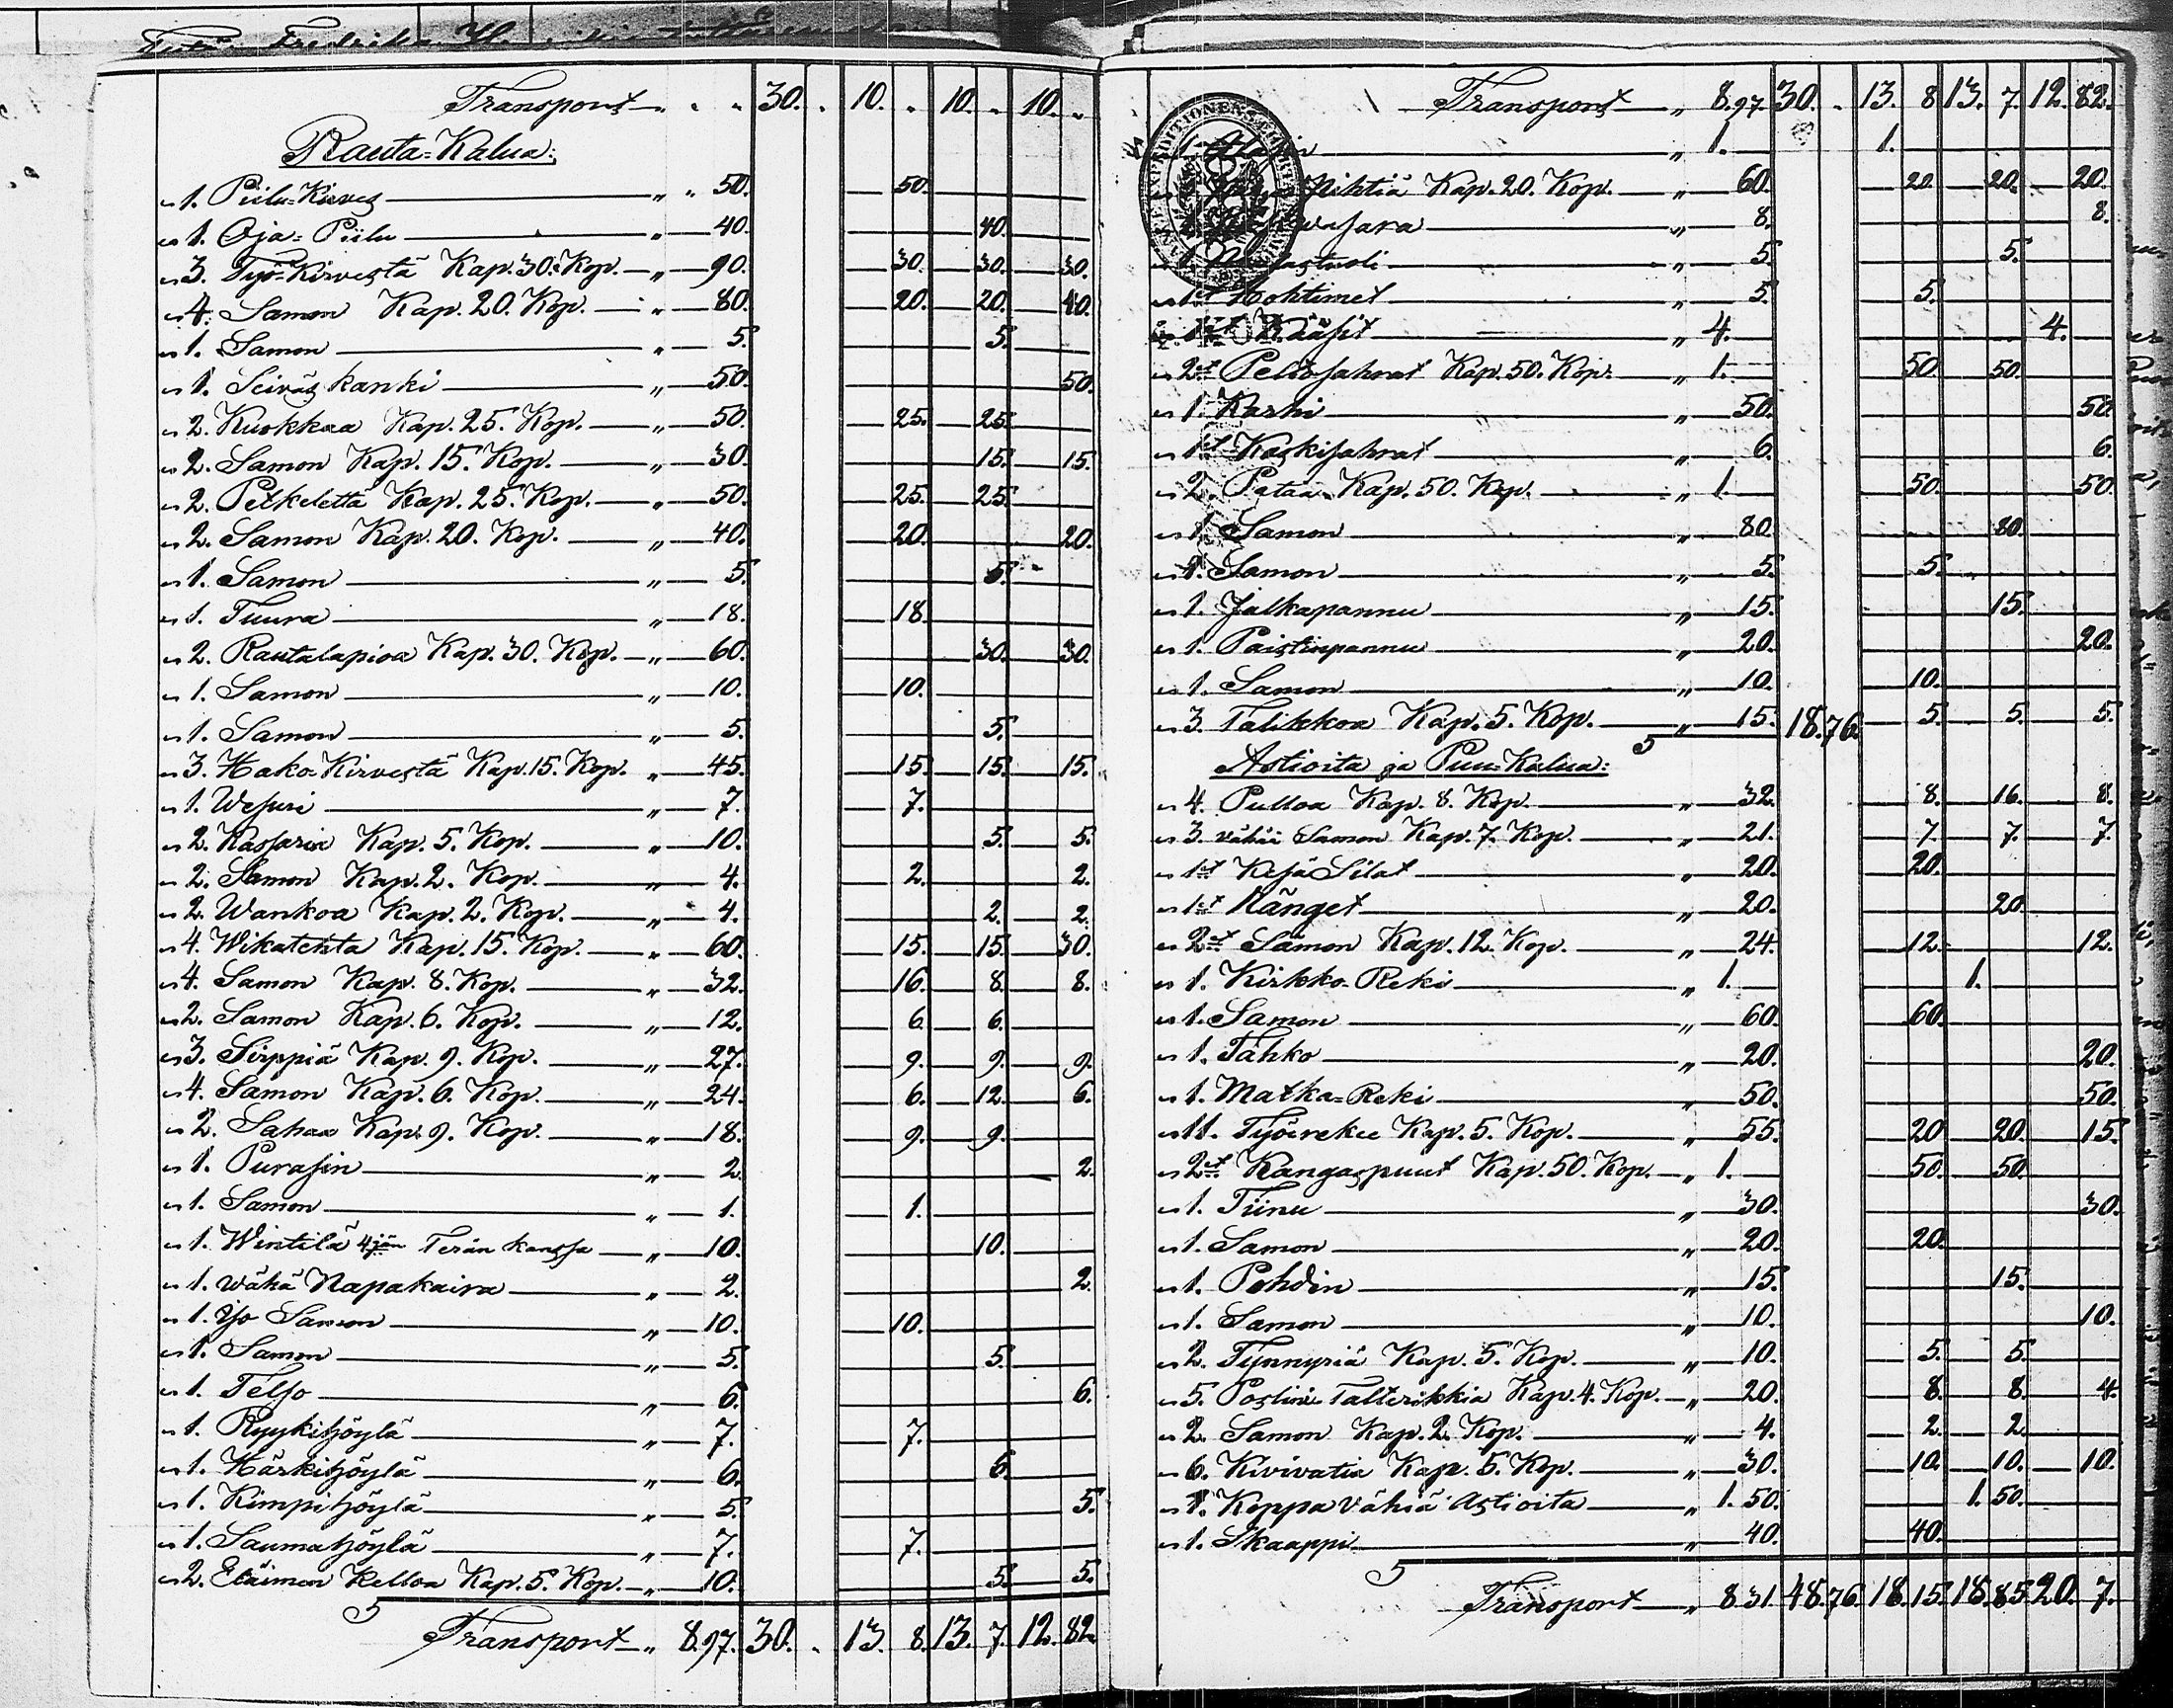 Transport „ „ „ 30. „ 10. „ 10. „ 10. „
Rauta=Kalua:
„ 1. Piilu=Kirves „ „ 50. 50.
„ 1. Oja=Piilu „ 40. 40.
„ 3. Työ=Kirvestä Kap. 30. Kop. „ 90. 30. 30. 30.
„ 4. Samon Kap. 20. Kop. „ 80. 20. 20. 40.
„ 1. Samon „ 5. 5.
„ 1. Seiväskanki „ 50. 50.
„ 2. Kuokkaa Kap. 25. Kop. „ 50. 25. 25.
„ 2. Samon Kap. 15. Kop. „ 30. 15. 15.
„ 2. Petkelettä Kap. 25. Kop. „ 50. 25. 25.
„ 2. Samon Kap. 20. Kop. „ 40. 20. 20.
„ 1. Samon „ 5. 5.
„ 1. Tuura „ 18. 18.
„ 2. Rautalapioa Kap. 30. Kop. „ 60. 30. 30.
„ 1. Samon „ 10. 10.
„ 1. Samon „ 5. 5.
„ 3. Hako=Kirvestä Kap. 15. Kop. „ 45. 15. 15. 15.
„ 1. Wesuri „ 7. 7.
„ 2. Kassaria Kap. 5. Kop. „ 10. 5. 5.
„ 2. Samon Kap. 2. Kop. „ 4. 2. 2.
„ 2. Wankoa Kap. 2. Kop. „ 4. 2. 2.
„ 4. Wikatehta Kap. 15. Kop. „ 60. 15. 15. 30.
„ 4. Samon Kap. 8. Kop. „ 32. 16. 8. 8.
„ 2. Samon Kap. 6. Kop. „ 12. 6. 6.
„ 3. Sirppiä Kap. 9. Kop. „ 27. 9. 9. 9.
„ 4. Samon Kap. 6. Kop. „ 24. 6. 12. 6.
„ 2. Sahaa Kap. 9. Kop. „ 18. 9. 9.
„ 1. Purasin „ 2. 2.
„ 1. Samon „ 1. 1.
„ 1. Wintilä 4jän Terän kanssa „ 10. 10.
„ 1. Wähä Napakaira „ 2. 2.
„ 1. Iso Samon „ 10. 10.
„ 1. Samon „ 5. 5.
„ 1. Telso „ 6. 6.
„ 1. Ryykihöylä „ 7. 7.
„ 1. Härkihöylä „ 6. 6.
„ 1. Kimpihöylä „ 5. 5.
„ 1. Saumahöylä „ 7. 7.
„ 2. Eläimen Kelloa Kap. 5. Kop. „ 10. 5. 5.
Transport „ 8.97. 30. „ 13. 8. 13. 7. 12. 82.
Transport „ 8.97. 30. „ 13. 8 13. 7. 12. 82.
„ 1. 1.
Pihtiä Kap. 20. Kop. „ 60. 20. 20. 20.
vasara „ 8. 8.
„ 5. 5.
Hohtimet „ 5. 5.
„ 4. 4.
„ 2t Peltosahrat Kap. 50. Kop. „ 1. 50. 50.
„ 1. Karhi „ 50. 50.
„ 1t Kaskisahrat „ 6. 6.
„ 2. Pataa Kap. 50. Kop. „ 1. 50. 50.
„ 1. Samon „ 80. 80.
„ 1. Samon „ 5. 5.
„ 1. Jalkapannu „ 15. 15.
„ 1. Paistinpannu „ 20. 20.
„ 1. Samon „ 10. 10.
„ 3. Talikkoa Kap. 5. Kop. „ 15. 18. 76. 5. 5. 5.
Astioita ja Puu=Kalua:
„ 4. Pulloa Kap. 8. Kop. „ 32. 8. 16. 8.
„ 3. vähä Samon Kap. 7. Kop. „ 21. 7. 7. 7
„ 1t Kesä Silat „ 20. 20.
„ 1t Länget „ 20. 20.
„ 2t Samon Kap. 12. Kop. „ 24. 12. 12.
„ 1. Kirkko=Reki „ 1. 1.
„ 1. Samon „ 60. 60.
„ 1. Tahko „ 20. 20.
„ 1. Matka=Reki „ 50. 50.
„ 11. Työrekee Kap. 5. Kop. „ 55. 20. 20. 15.
„ 2t Kangaspuut Kap. 50. Kop. „ 1. 50. 50.
„ 1. Tiinu „ 30. 30.
„ 1. Samon „ 20. 20.
„ 1. Pohdin „ 15. 15.
„ 1. Samon „ 10. 10.
„ 2. Tynnyriä Kap. 5. Kop. „ 10. 5. 5.
„ 5. Posliini Talterikkia Kap. 4. Kop. „ 20. 8. 8. 4.
„ 2. Samon Kap. 2 Kop. „ 4. 2. 2.
„ 6. Kivivatia Kap. 5. Kop. „ 30. 10. 10. 10.
„ 1. Koppa Vähiä Astioita „ 1. 50. 1. 50.
„ 1. Skaappi „ 40. 40.
Transport „ 8 31. 48. 76. 18. 15. 18. 85 20. 7.